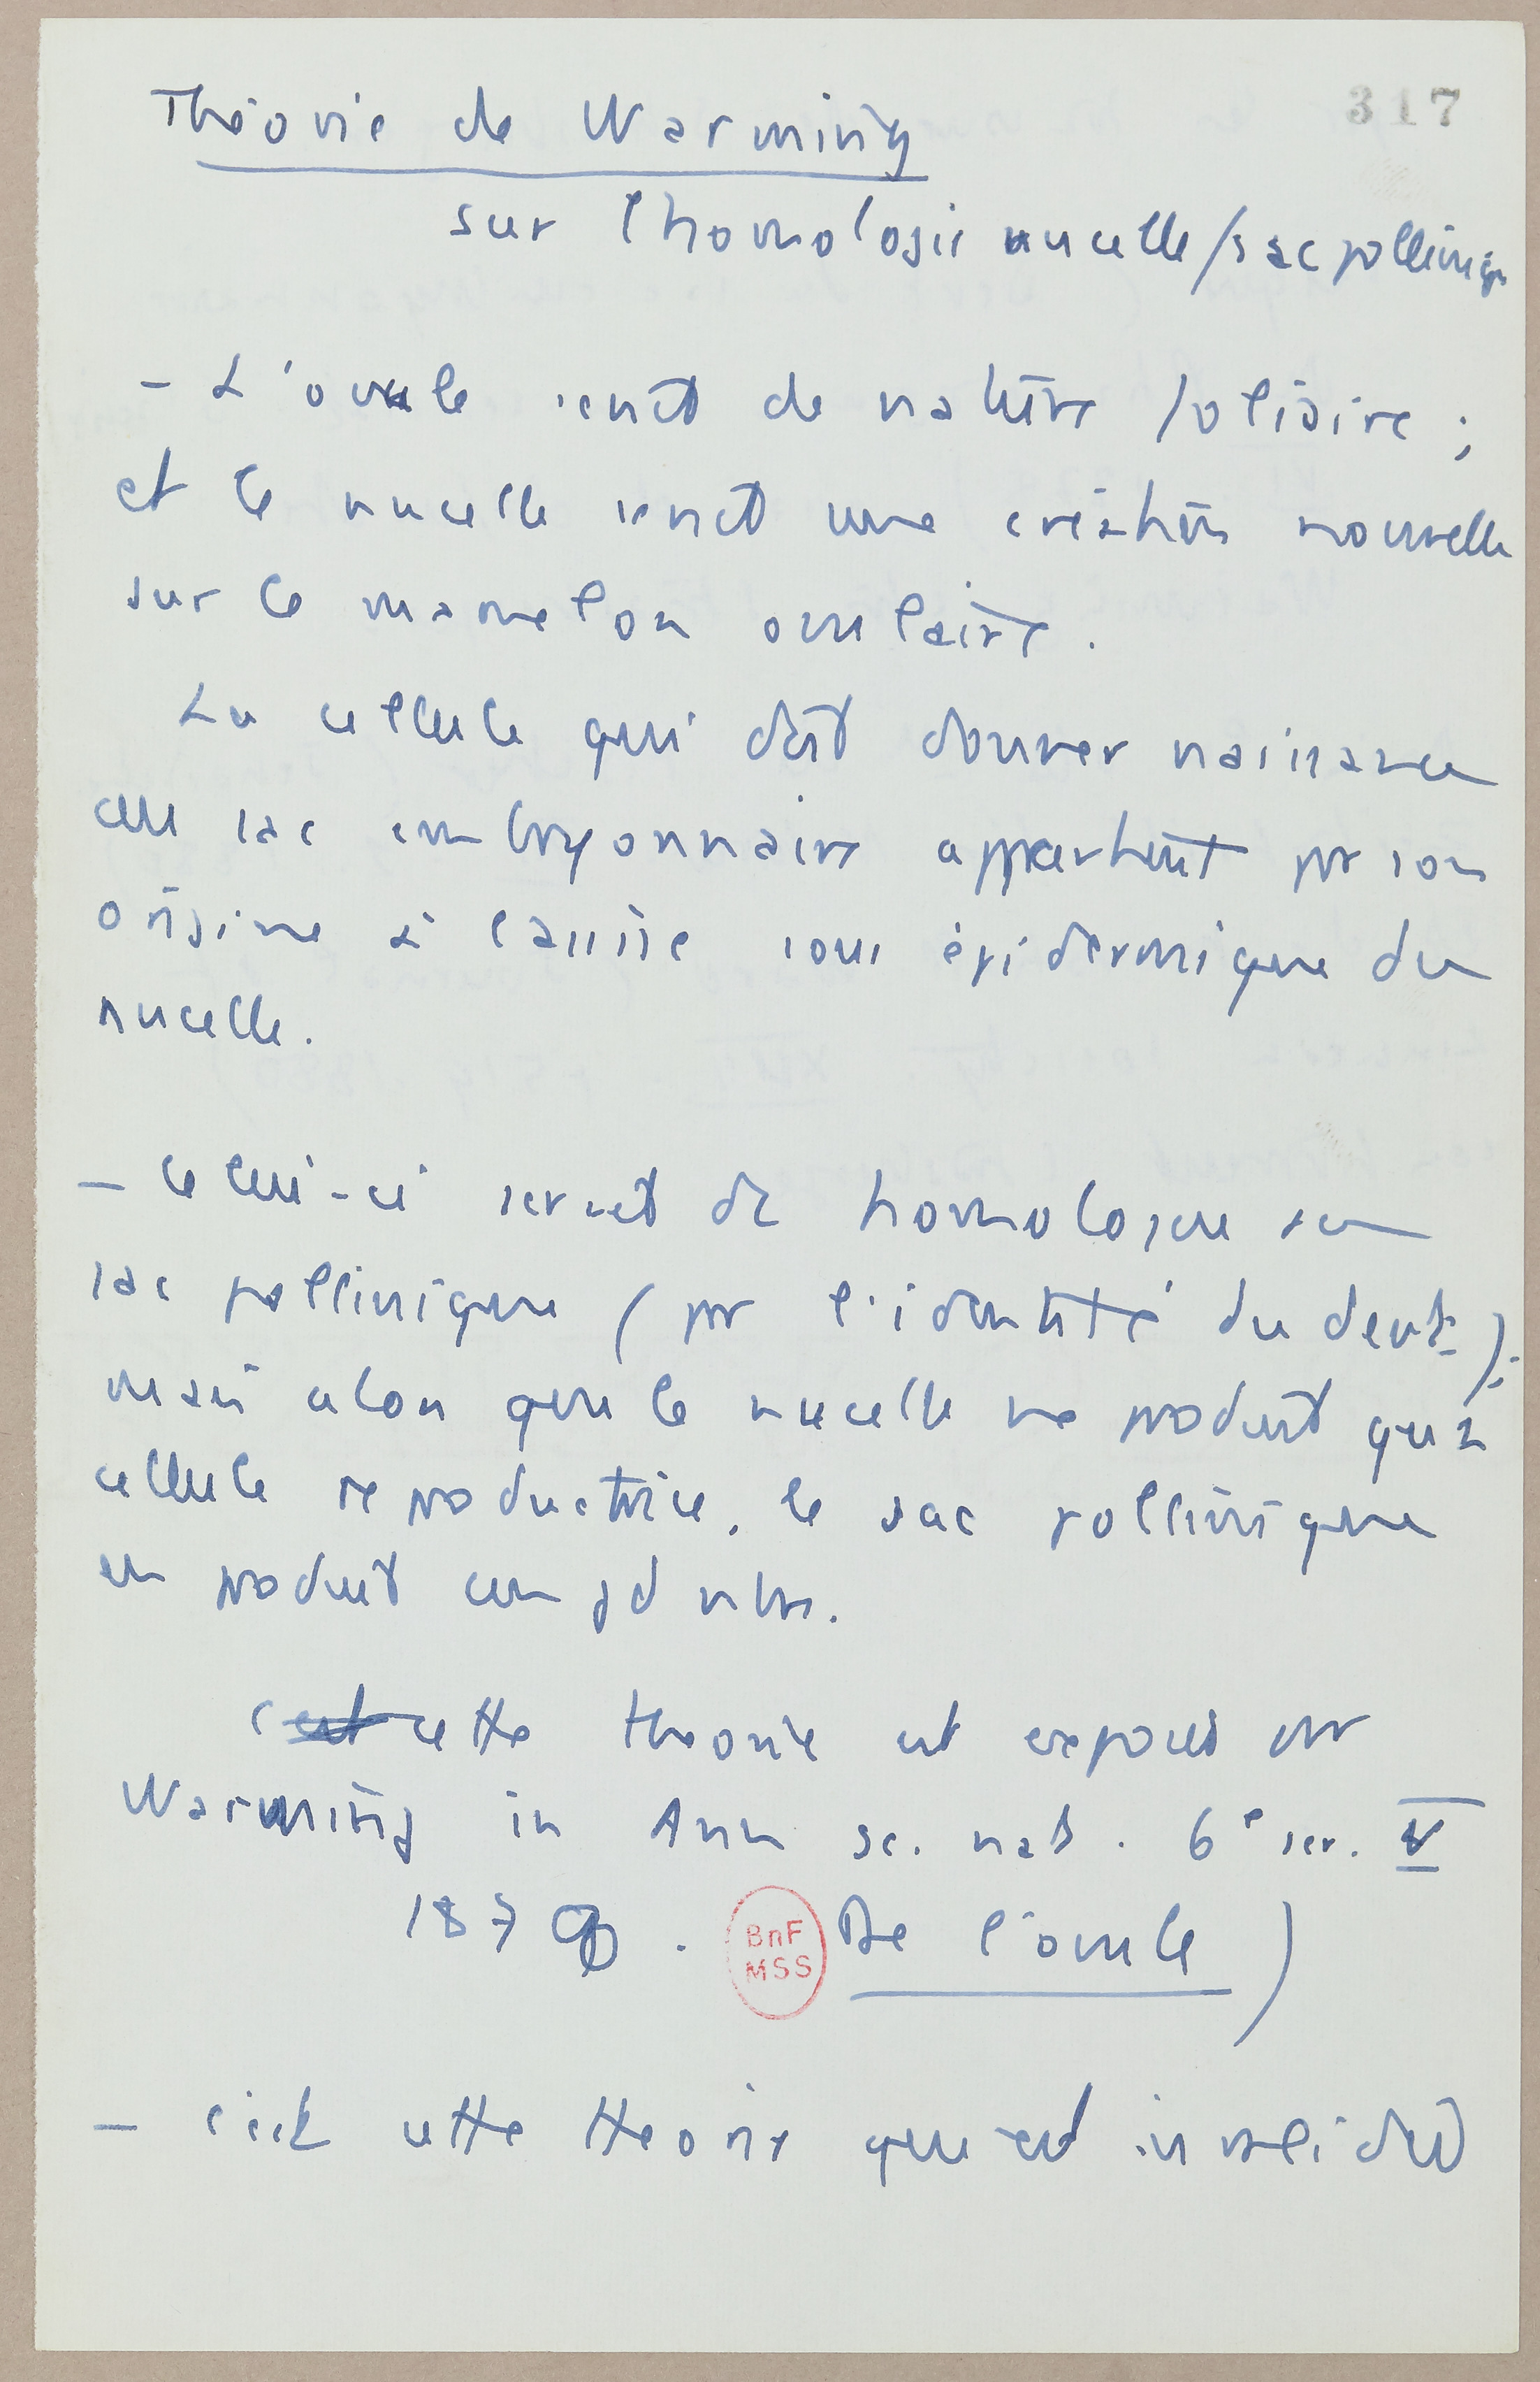 317
Théorie de Warming
sur l'homologie nucelle/sac pollinique
- L'ovule serait de nature foliaire ;
et le nucelle serait une création nouvelle
sur le mamelon ovulaire.
La cellule qui doit donner naissance
au sac embryonnaire appartient par son
origine à l'assise sous épidermique du
nucelle.
- Celui-ci serait dc homologue au
sac pollinique (par l'identité du devt.) ;
mais alors que le nucelle ne produit qu'1
cellule reproductrice, le sac pollinique
en produit un gd nbre.
cette théorie est exposée par
Warming in Ann sc. nat. 6e ser. V
1878. De l'ovule )
BnF
MSS
- c'est cette théorie que